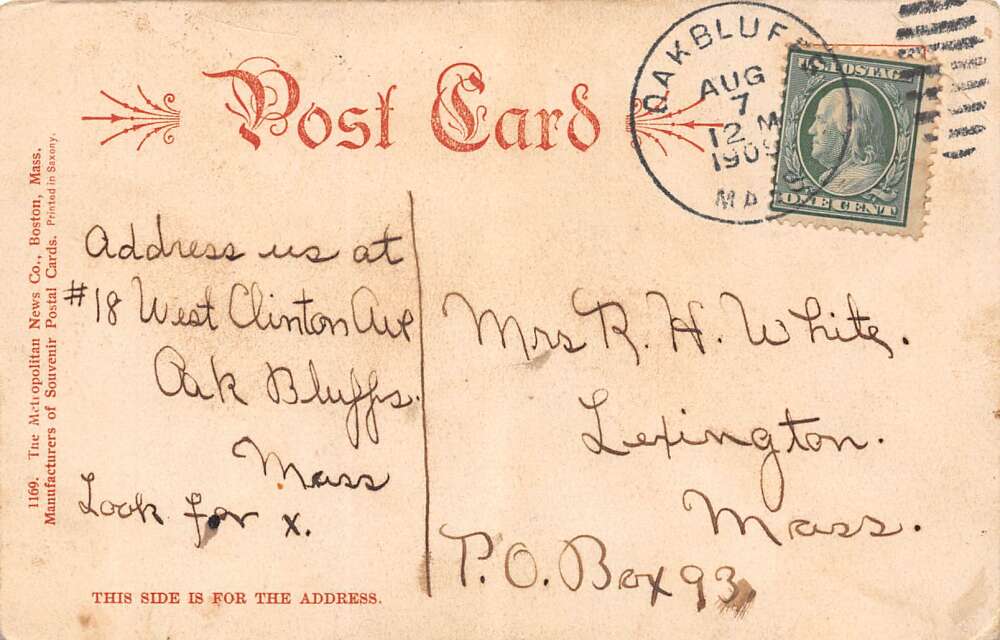 Post Card
OAK BLUFFS
AUG
7
12 M
1909
MASS
U.S. POSTAGE
ONE CENT
1169. The Metropolitan News Co., Boston, Mass.
Manufacturers of Souvenir Postal Cards. Printed in Saxony.
Address us at
#18 West Clinton Ave
Oak Bluffs.
Mass
Look for x.
Mrs R. H. White.
Lexington.
Mass.
P.O. Box 93
THIS SIDE IS FOR THE ADDRESS.